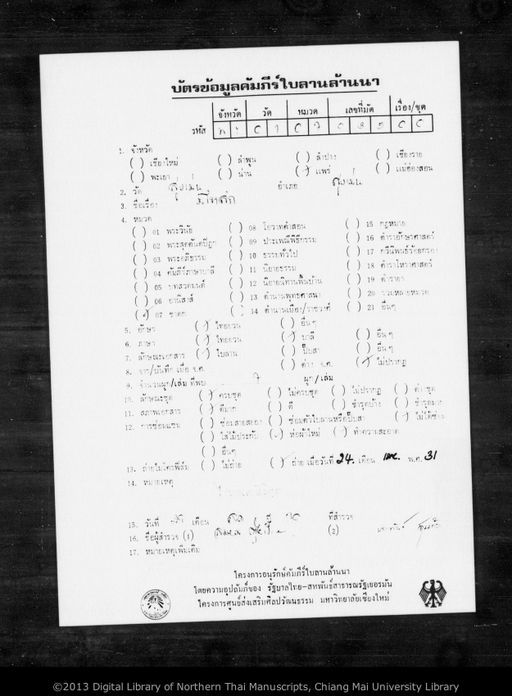 บัตรข้อมูลคัมภีร์ใบลานล้านนา
จังหวัด วัด หมวด เลขที่มัด เรื่อง/ชุด
รหัส
1. จังหวัด
( ) เชียงใหม่ ( ) ลำพูน ( ) ลำปาง ( ) เชียงราย
( ) พะเยา ( ) น่าน (✓) แพร่ ( ) แม่ฮ่องสอน
2. วัด สูงเม่น อำเภอ สูงเม่น
3. ชื่อเรื่อง
4. หมวด
( ) 01 พระวินัย ( ) 08 โอวาทคำสอน ( ) 15 กฎหมาย
( ) 02 พระสุตตันตปิฎก ( ) 09 ประเพณีพิธีกรรม ( ) 16 ตำราอักษรศาสตร์
( ) 03 พระอภิธรรม ( ) 10 ธรรมทั่วไป ( ) 17 กวีนิพนธ์ร้อยกรอง
( ) 04 คัมภีร์ภาษาบาลี ( ) 11 นิยายธรรม ( ) 18 ตำราโหราศาสตร์
( ) 05 บทสวดมนต์ ( ) 12 นิยายนิทานพื้นบ้าน ( ) 19 ตำรายา
( ) 06 อานิสงส์ ( ) 13 ตำนานพุทธศาสนา ( ) 20 รวมหลายหมวด
(✓) 07 ชาดก ( ) 14 ตำนานเมือง/ราชวงศ์ ( ) 21 อื่นๆ
5. อักษร (✓) ไทยยวน ( ) อื่นๆ
6. ภาษา (✓) ไทยยวน (✓) บาลี ( ) อื่นๆ
7. ลักษณะเอกสาร (✓) ใบลาน ( ) ปั๊บสา ( ) อื่นๆ
8. จาร/บันทึก เมื่อ จ.ศ. ( ) ค่าว จ.ศ. (✓) ไม่ปรากฏ
9. จำนวนผูก/เล่ม ที่พบ 7 ผูก/เล่ม
10. ลักษณะชุด (✓) ครบชุด ( ) ไม่ครบชุด ( ) ไม่ปรากฏ
11. สภาพเอกสาร (✓) ดีมาก ( ) ดี ( ) ชำรุดบ้าง ( ) ชำรุดมาก
12. การซ่อมแซม ( ) ซ่อมสายสยอง ( ) ซ่อมตัวใบลานหรือปั๊บสา
( ) ใส่ไม้ประกับ (✓) ห่อผ้าใหม่ (✓) ทำความสะอาด
( ) อื่นๆ
13. ถ่ายไมโครฟิล์ม ( ) ไม่ถ่าย ( ) ถ่าย เมื่อวันที่ 24. เดือน เมย. พ.ศ. 31
14. หมายเหตุ
15. วันที่ เดือน ที่สำรวจ
16. ชื่อผู้สำรวจ (1) (2)
17. หมายเหตุเพิ่มเติม
โครงการอนุรักษ์คัมภีร์ใบลานล้านนา
โดยความอุปถัมภ์ของ รัฐบาลไทย-สหพันธ์สาธารณรัฐเยอรมัน
โครงการศูนย์ส่งเสริมศิลปวัฒนธรรม มหาวิทยาลัยเชียงใหม่
©2013 Digital Library of Northern Thai Manuscripts, Chiang Mai University Library